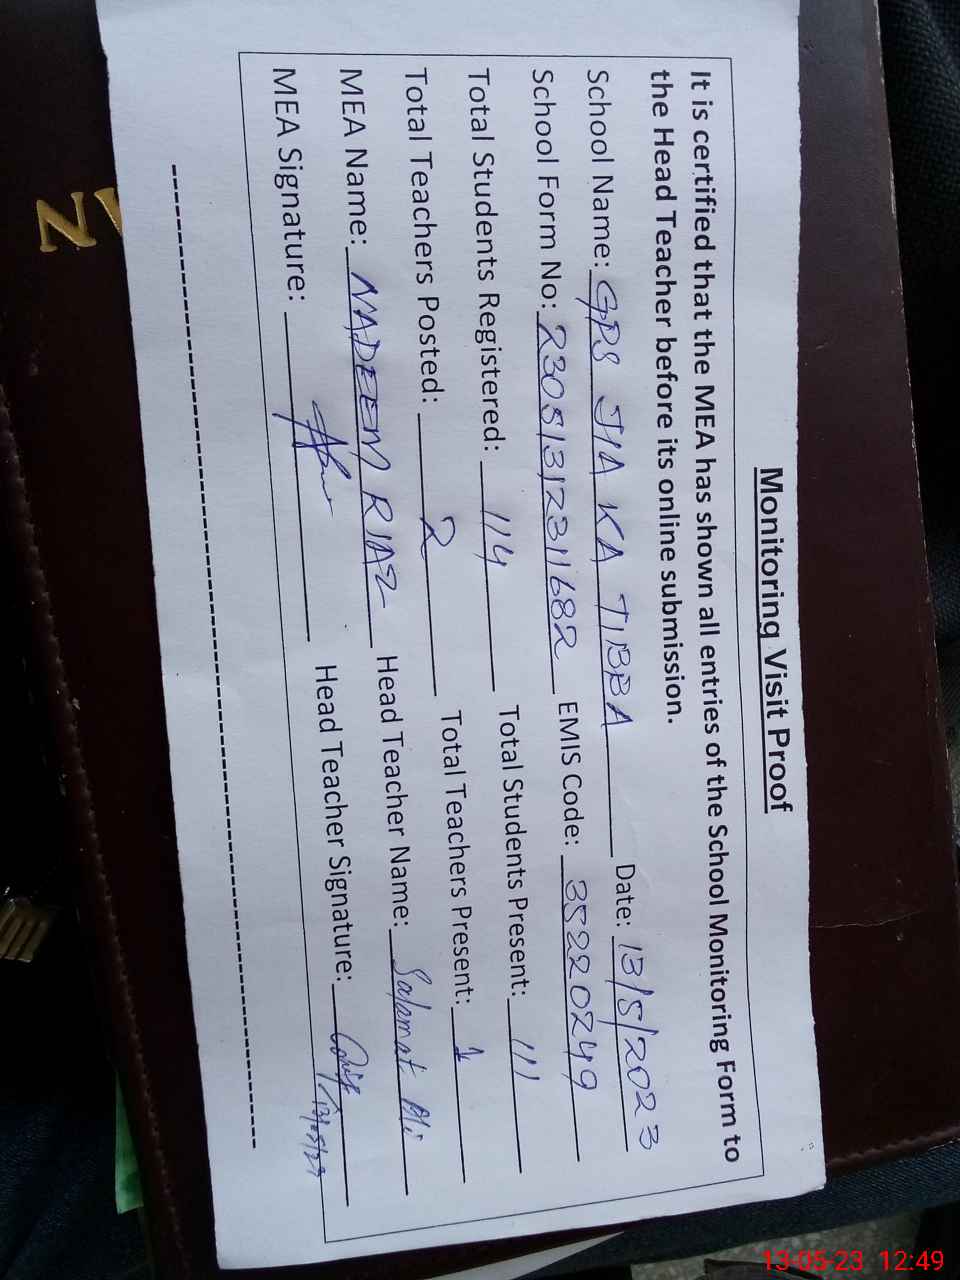 Monitoring Visit Proof
It is certified that the MEA has shown all entries of the School Monitoring Form to
the Head Teacher before its online submission.
School Name: GPS JIA KA TIBBA Date: 13/5/2023
School Form No: 23051312311682 EMIS Code: 35220249
Total Students Registered: 114 Total Students Present: 111
Total Teachers Posted: 2 Total Teachers Present: 1
MEA Name: NADEEM RIAZ Head Teacher Name: Salamat Ali
MEA Signature: Head Teacher Signature:
13/05/23
N
13-05-23 12:49